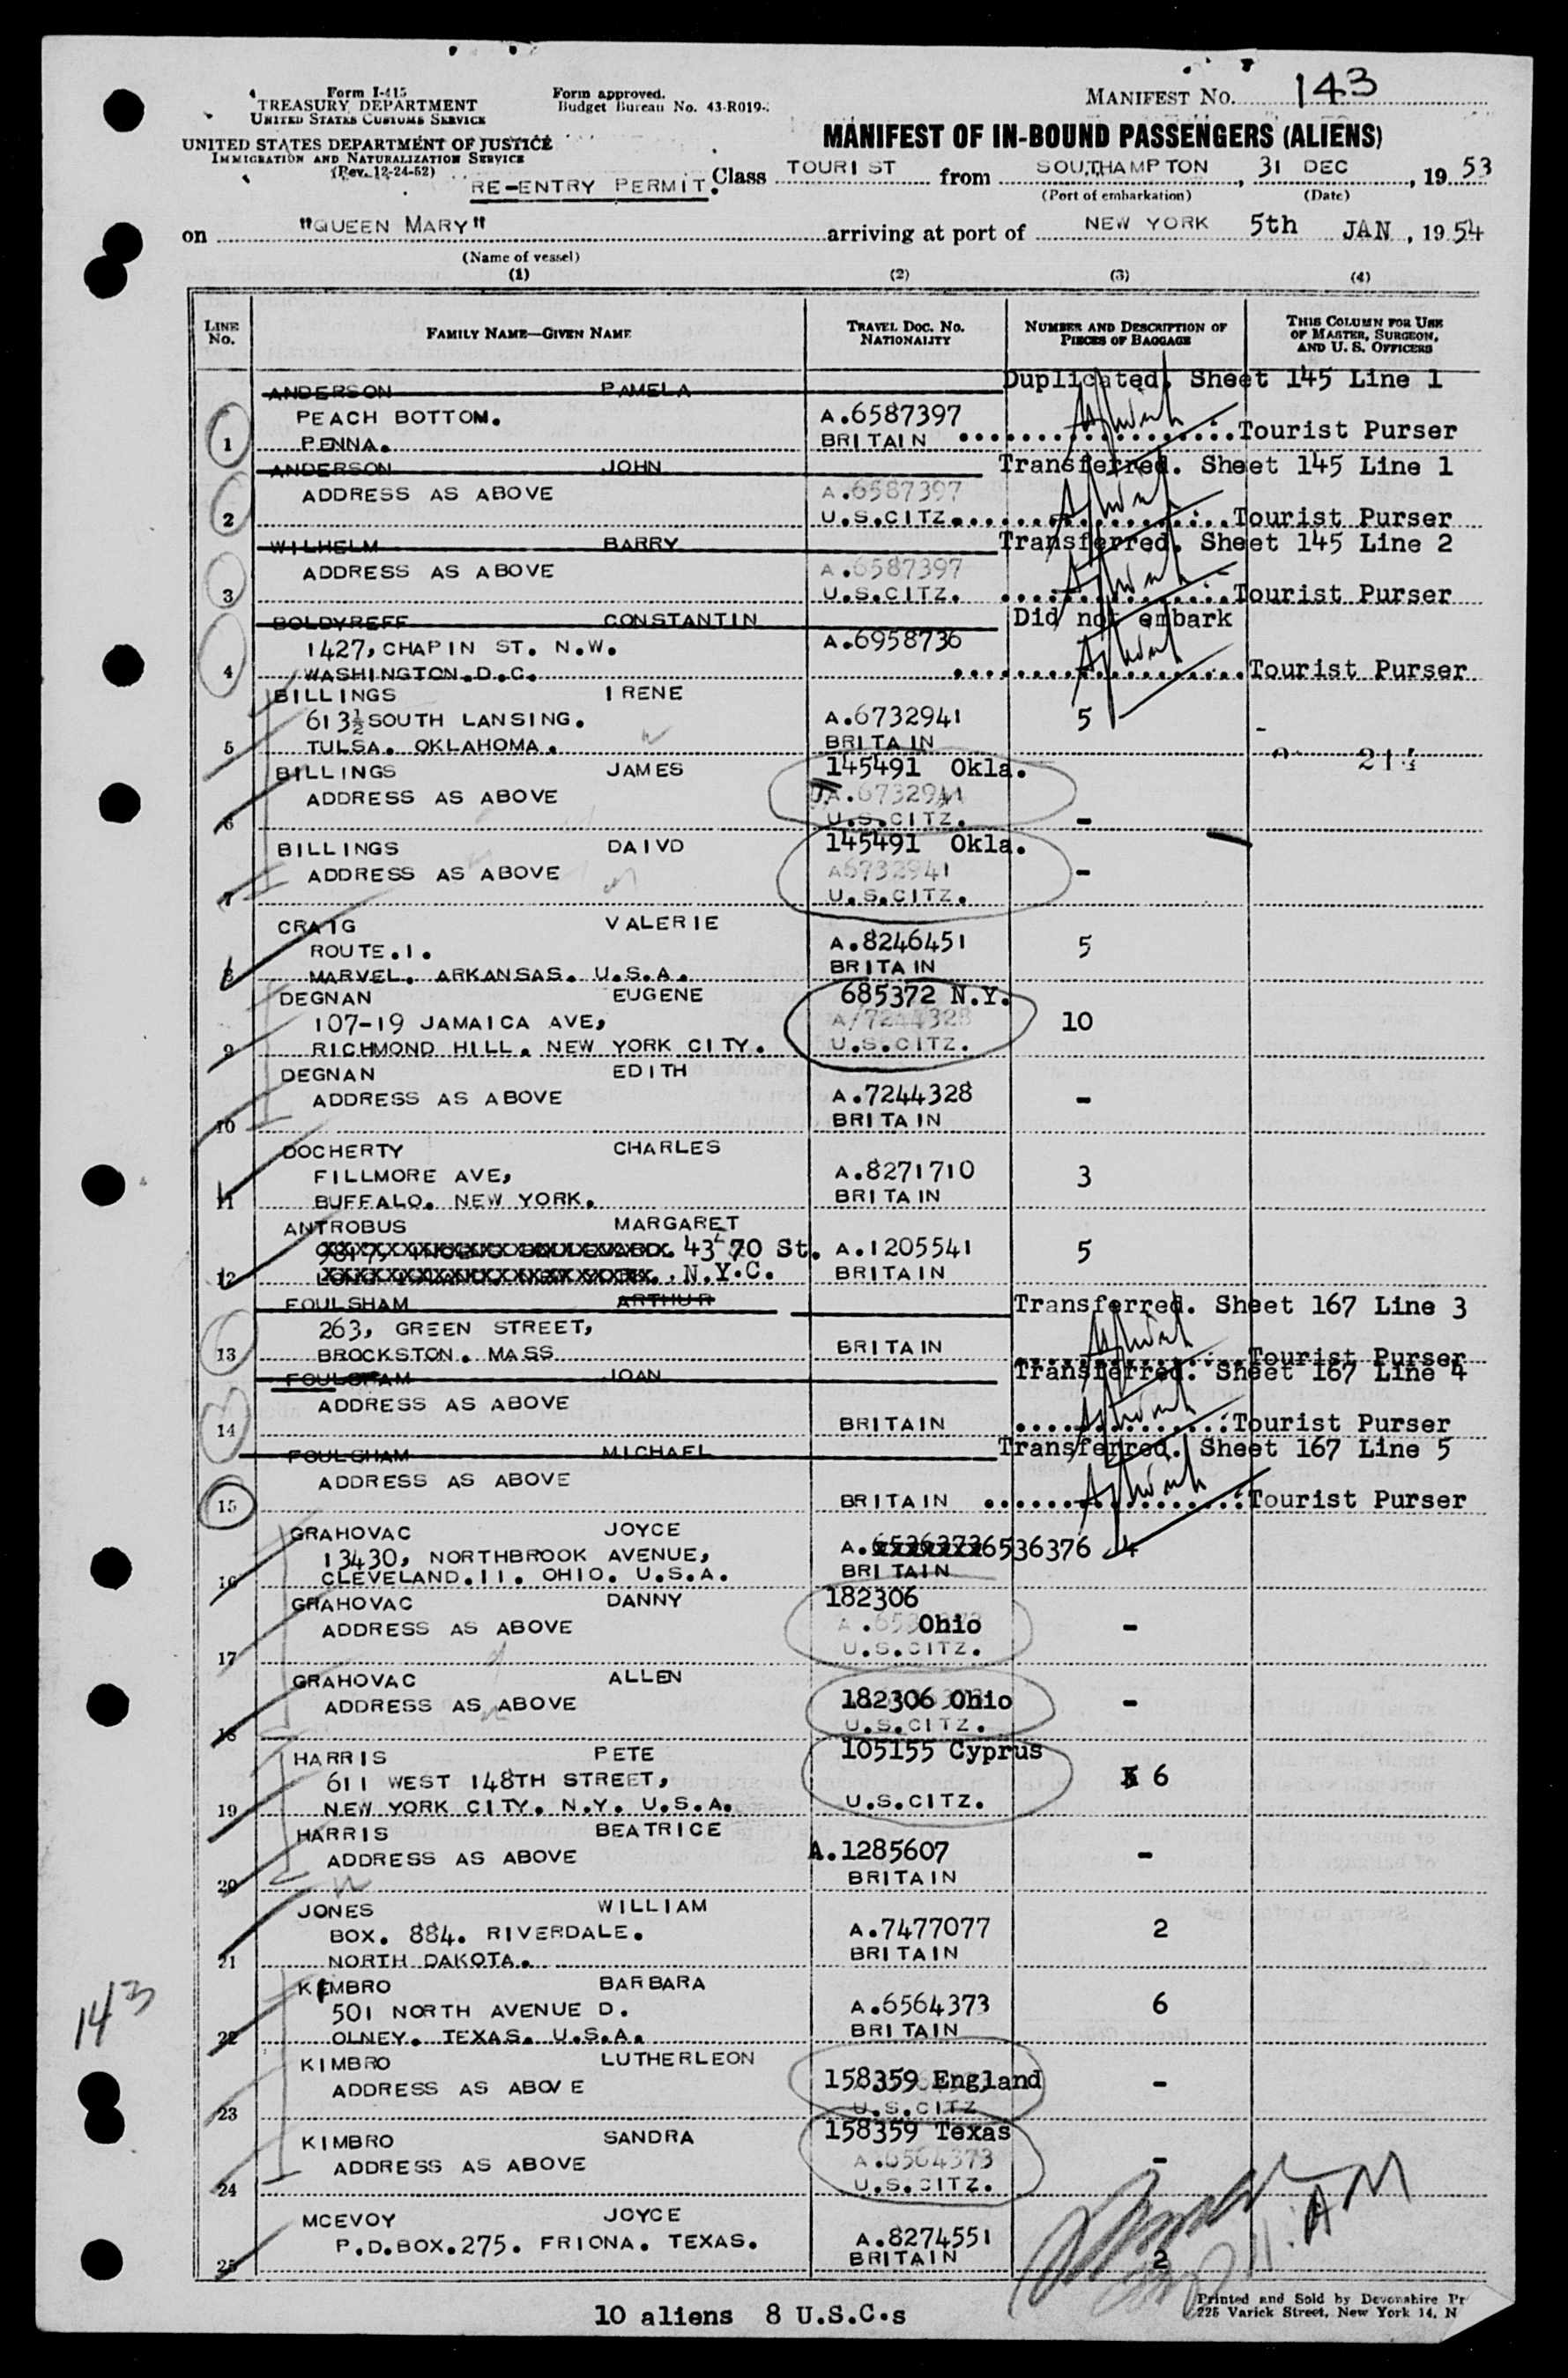 Form I-415
TREASURY DEPARTMENT
UNITED STATES CUSTOMS SERVICE
UNITED STATES DEPARTMENT OF JUSTICE
IMMIGRATION AND NATURALIZATION SERVICE
(Rev. 12-24-52)
Form approved.
Budget Bureau No. 43-R019-
MANIFEST NO. 143
MANIFEST OF IN-BOUND PASSENGERS (ALIENS)
RE-ENTRY PERMIT. Class TOURIST from SOUTHAMPTON, 31 DEC, 19 53
(Port of embarkation) (Date)
on "QUEEN MARY" arriving at port of NEW YORK 5th JAN, 19 54
(Name of vessel)
(1) (2) (3) (4)
LINE No. FAMILY NAME—GIVEN NAME TRAVEL DOC. NO. NATIONALITY NUMBER AND DESCRIPTION OF PIECES OF BAGGAGE THIS COLUMN FOR USE OF MASTER, SURGEON, AND U. S. OFFICERS
ANDERSON PAMELA Duplicated. Sheet 145 Line 1
PEACH BOTTOM. A.6587397
1 PENNA. BRITAIN Tourist Purser
ANDERSON JOHN Transferred. Sheet 145 Line 1
ADDRESS AS ABOVE A.6587397
2 U.S.CITZ. Tourist Purser
WILHELM BARRY Transferred. Sheet 145 Line 2
ADDRESS AS ABOVE A.6587397
3 U.S.CITZ. Tourist Purser
BOLDYREFF CONSTANTIN Did not embark
1427, CHAPIN ST. N.W. A.6958736
4 WASHINGTON.D.C. Tourist Purser
BILLINGS IRENE
613½ SOUTH LANSING. A.6732941 5 -
5 TULSA. OKLAHOMA. BRITAIN
BILLINGS JAMES 145491 Okla.
ADDRESS AS ABOVE A.6732941
6 U.S.CITZ. -
BILLINGS DAIVD 145491 Okla.
ADDRESS AS ABOVE A6732941 -
7 U.S.CITZ.
CRAIG VALERIE
ROUTE.1. A.8246451 5
8 MARVEL. ARKANSAS. U.S.A. BRITAIN
DEGNAN EUGENE 685372 N.Y.
107-19 JAMAICA AVE, A/7244328 10
9 RICHMOND HILL. NEW YORK CITY. U.S.CITZ.
DEGNAN EDITH
ADDRESS AS ABOVE A.7244328 -
10 BRITAIN
DOCHERTY CHARLES
FILLMORE AVE, A.8271710 3
11 BUFFALO. NEW YORK. BRITAIN
ANTROBUS MARGARET
43 70 St. A.1205541 5
12 N.Y.C. BRITAIN
FOULSHAM ARTHUR Transferred. Sheet 167 Line 3
263, GREEN STREET,
13 BROCKSTON. MASS BRITAIN Tourist Purser
FOULSHAM JOAN Transferred. Sheet 167 Line 4
ADDRESS AS ABOVE
14 BRITAIN Tourist Purser
FOULSHAM MICHAEL Transferred. Sheet 167 Line 5
ADDRESS AS ABOVE
15 BRITAIN Tourist Purser
GRAHOVAC JOYCE
13430, NORTHBROOK AVENUE, A. 6536376 4
16 CLEVELAND.11. OHIO. U.S.A. BRITAIN
GRAHOVAC DANNY 182306
ADDRESS AS ABOVE Ohio -
17 U.S.CITZ.
GRAHOVAC ALLEN
ADDRESS AS ABOVE 182306 Ohio -
18 U.S.CITZ.
HARRIS PETE 105155 Cyprus
611 WEST 148TH STREET, 6
19 NEW YORK CITY. N.Y. U.S.A. U.S.CITZ.
HARRIS BEATRICE
ADDRESS AS ABOVE A.1285607 -
20 BRITAIN
JONES WILLIAM
BOX. 884. RIVERDALE. A.7477077 2
21 NORTH DAKOTA. BRITAIN
KIMBRO BARBARA
501 NORTH AVENUE D. A.6564373 6
22 OLNEY. TEXAS. U.S.A. BRITAIN
KIMBRO LUTHERLEON
ADDRESS AS ABOVE 158359 England -
23 U.S.CITZ
KIMBRO SANDRA 158359 Texas
ADDRESS AS ABOVE A.6564373 -
24 U.S.CITZ.
MCEVOY JOYCE
P.D.BOX.275. FRIONA. TEXAS. A.8274551
25 BRITAIN 2
143
10 aliens 8 U.S.C.s
Printed and Sold by Devonshire Pr
225 Varick Street, New York 14, N